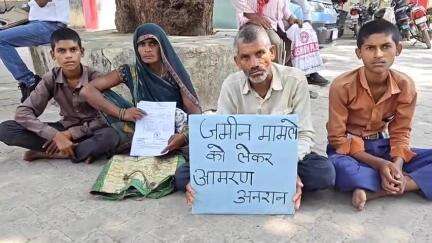 जमीन मामले
को लेकर
आमरण
अनशन